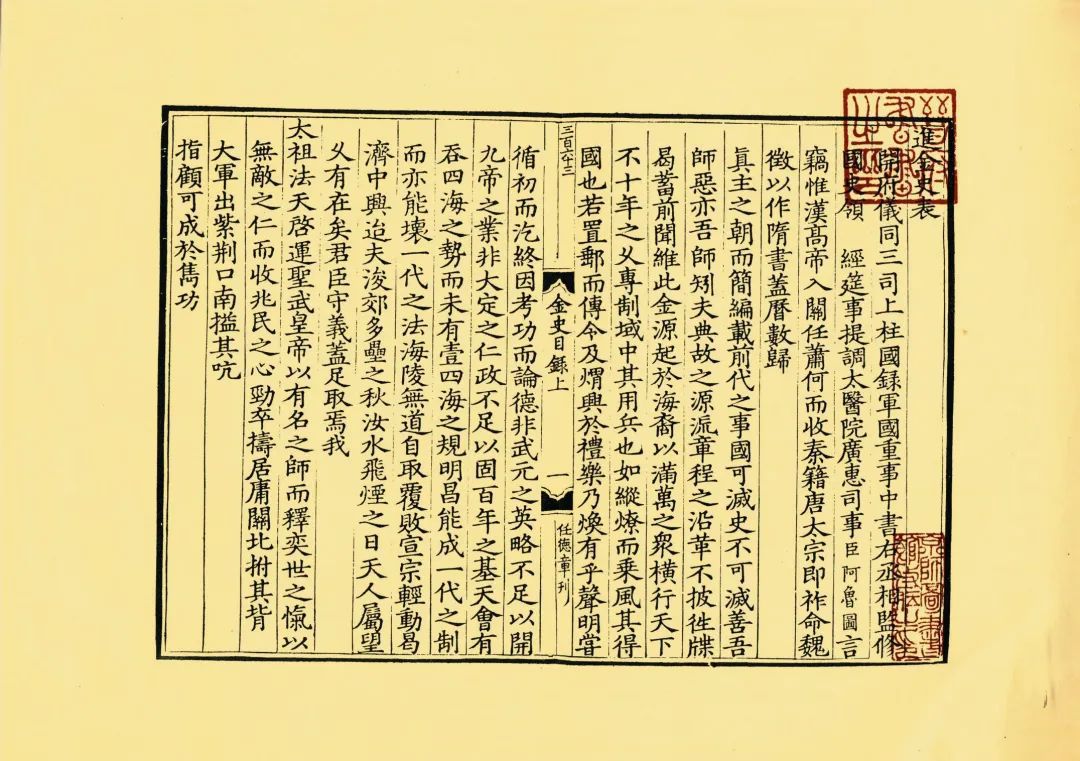 進金史表
開府儀同三司上柱國録軍國重事中書右丞相監修
國史領 經筵事提調太醫院廣惠司事臣阿魯圖言
竊惟漢高帝入關任蕭何而收秦籍唐太宗即祚命魏
徵以作隋書蓋曆數歸
真主之朝而簡編載前代之事國可滅史不可滅善吾
師惡亦吾師矧夫典故之源派章程之沿革不披徃牒
曷蓄前聞維此金源起於海裔以滿萬之衆橫行天下
不十年之久專制域中其用兵也如縱燎而乘風其得
國也若置郵而傳令及煟興於禮樂乃煥有乎聲明嘗
三百六十三
金史目録上
一
任德章刋
循初而汔終因考功而論德非武元之英略不足以開
九帝之業非大定之仁政不足以固百年之基天會有
吞四海之勢而未有壹四海之規明昌能成一代之制
而亦能壞一代之法海陵無道自取覆敗宣宗輕動曷
濟中興迨夫浚郊多壘之秋汝水飛煙之日天人屬望
乆有在矣君臣守義蓋足取焉我
太祖法天啓運聖武皇帝以有名之師而釋奕世之愾以
無敵之仁而收兆民之心勁卒擣居庸關北拊其背
大軍出紫荆口南搤其吭
指顧可成於雋功